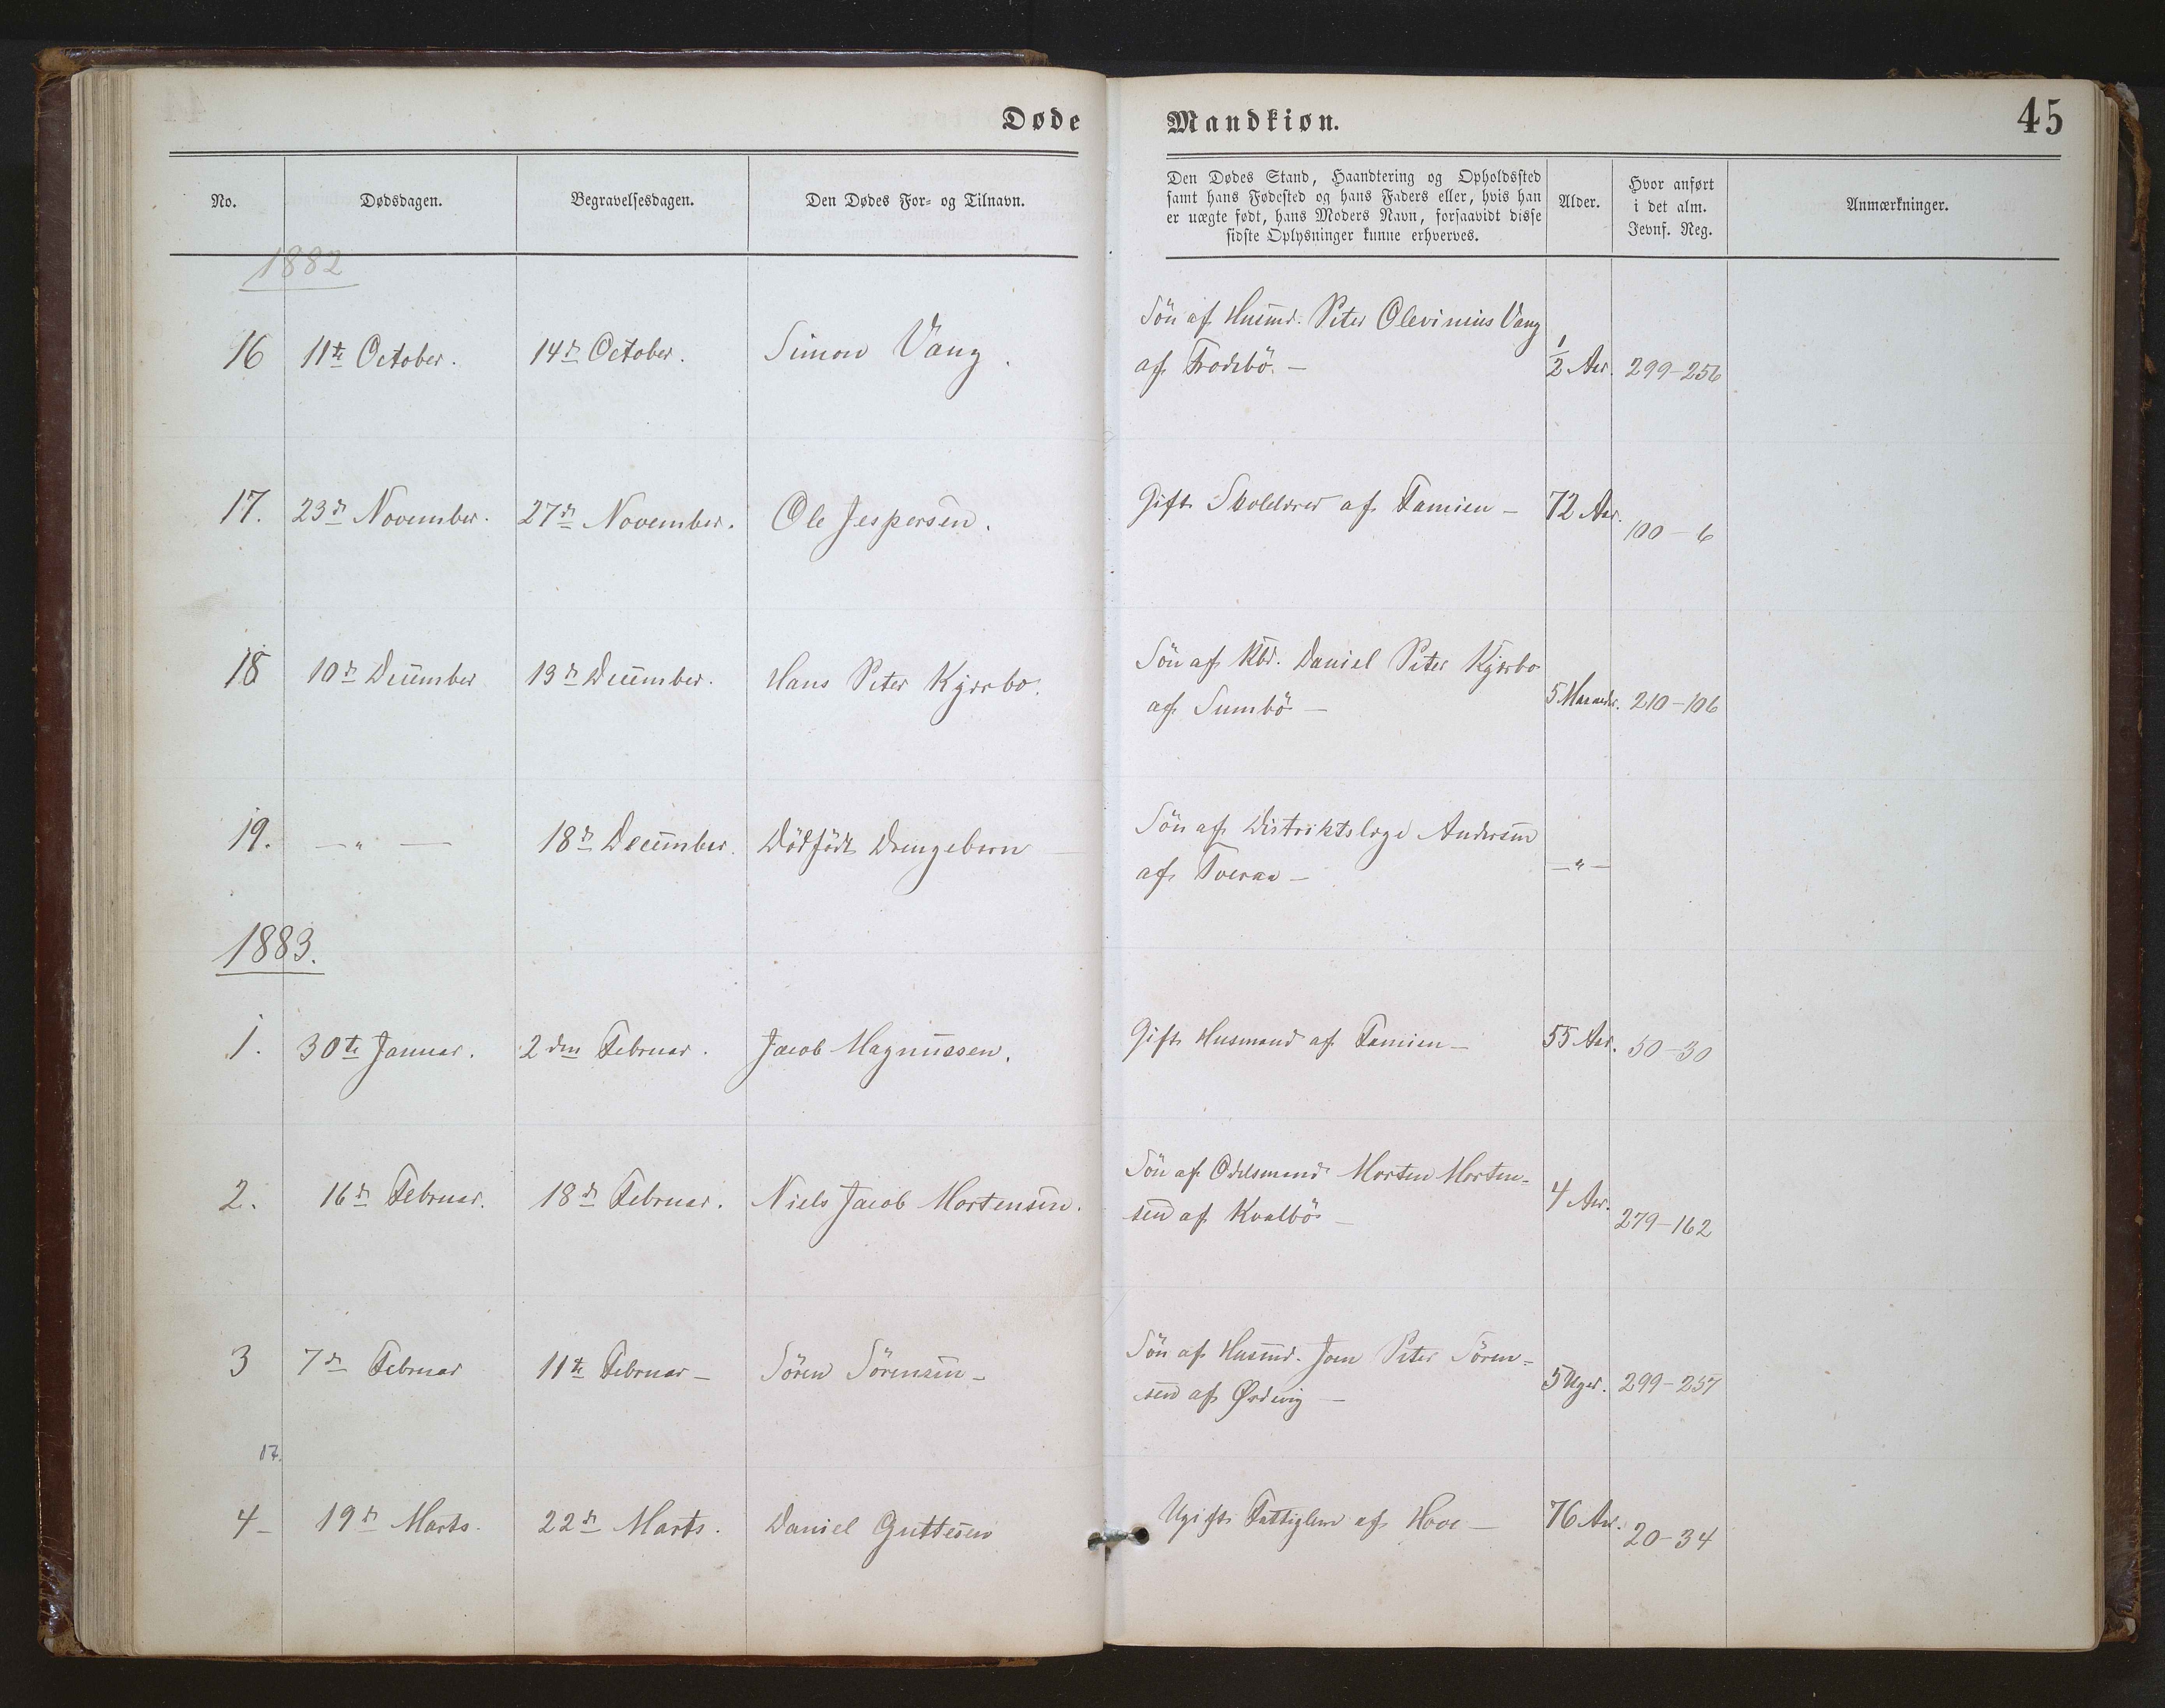 Døde Mandkiøn. 45
No. Dødsdagen. Begravelsesdagen. Den Dødes For- og Tilnavn.
Den Dødes Stand, Haandtering og Opholdssted
samt hans Fødested og hans Faders eller, hvis han
er uægte født, hans Moders Navn, forsaavidt disse
sidste Oplysninger kunne erhverves.
Alder.
Hvor anført
i det alm.
Jevnf. Reg.
Anmærkninger.
1882
16 11te October. 14de October. Simon Vang.
Søn af Husmd. Peter Olevinius Vang
af Frodebö. — 1/2 Aar. 299-256
17. 23de November. 27de November. Ole Jespersen. Gift Skolelærer af Famien — 72 Aar. 100-6
18 10de December 13de December. Hans Peter Kjærbo.
Søn af Kbd. Daniel Peter Kjærbo
af Sumbö — 5 Maaneder. 210-106
19. — " — 18de December. Dödfödt Drengebarn —
Søn af Distriktslæge Andersen
af Tveraa — — " —
1883.
1. 30te Januar. 2den Februar. Jacob Magnussen. Gift Husmand af Famien — 55 Aar. 50-30
2. 16de Februar. 18de Februar. Niels Jacob Mortensen.
Søn af Odelsmand Morten Morten-
sen af Kvalbö — 4 Aar. 279-162
3 7de Februar 11te Februar — Sören Sörensen —
Søn af Husmd. Joen Peter Sören-
sen af Ørdevig — 5 Uger. 299-257
17.
4 — 19de Marts. 22de Marts. Daniel Guttesen Ugift Fattiglem af Hove — 76 Aar. 20-34